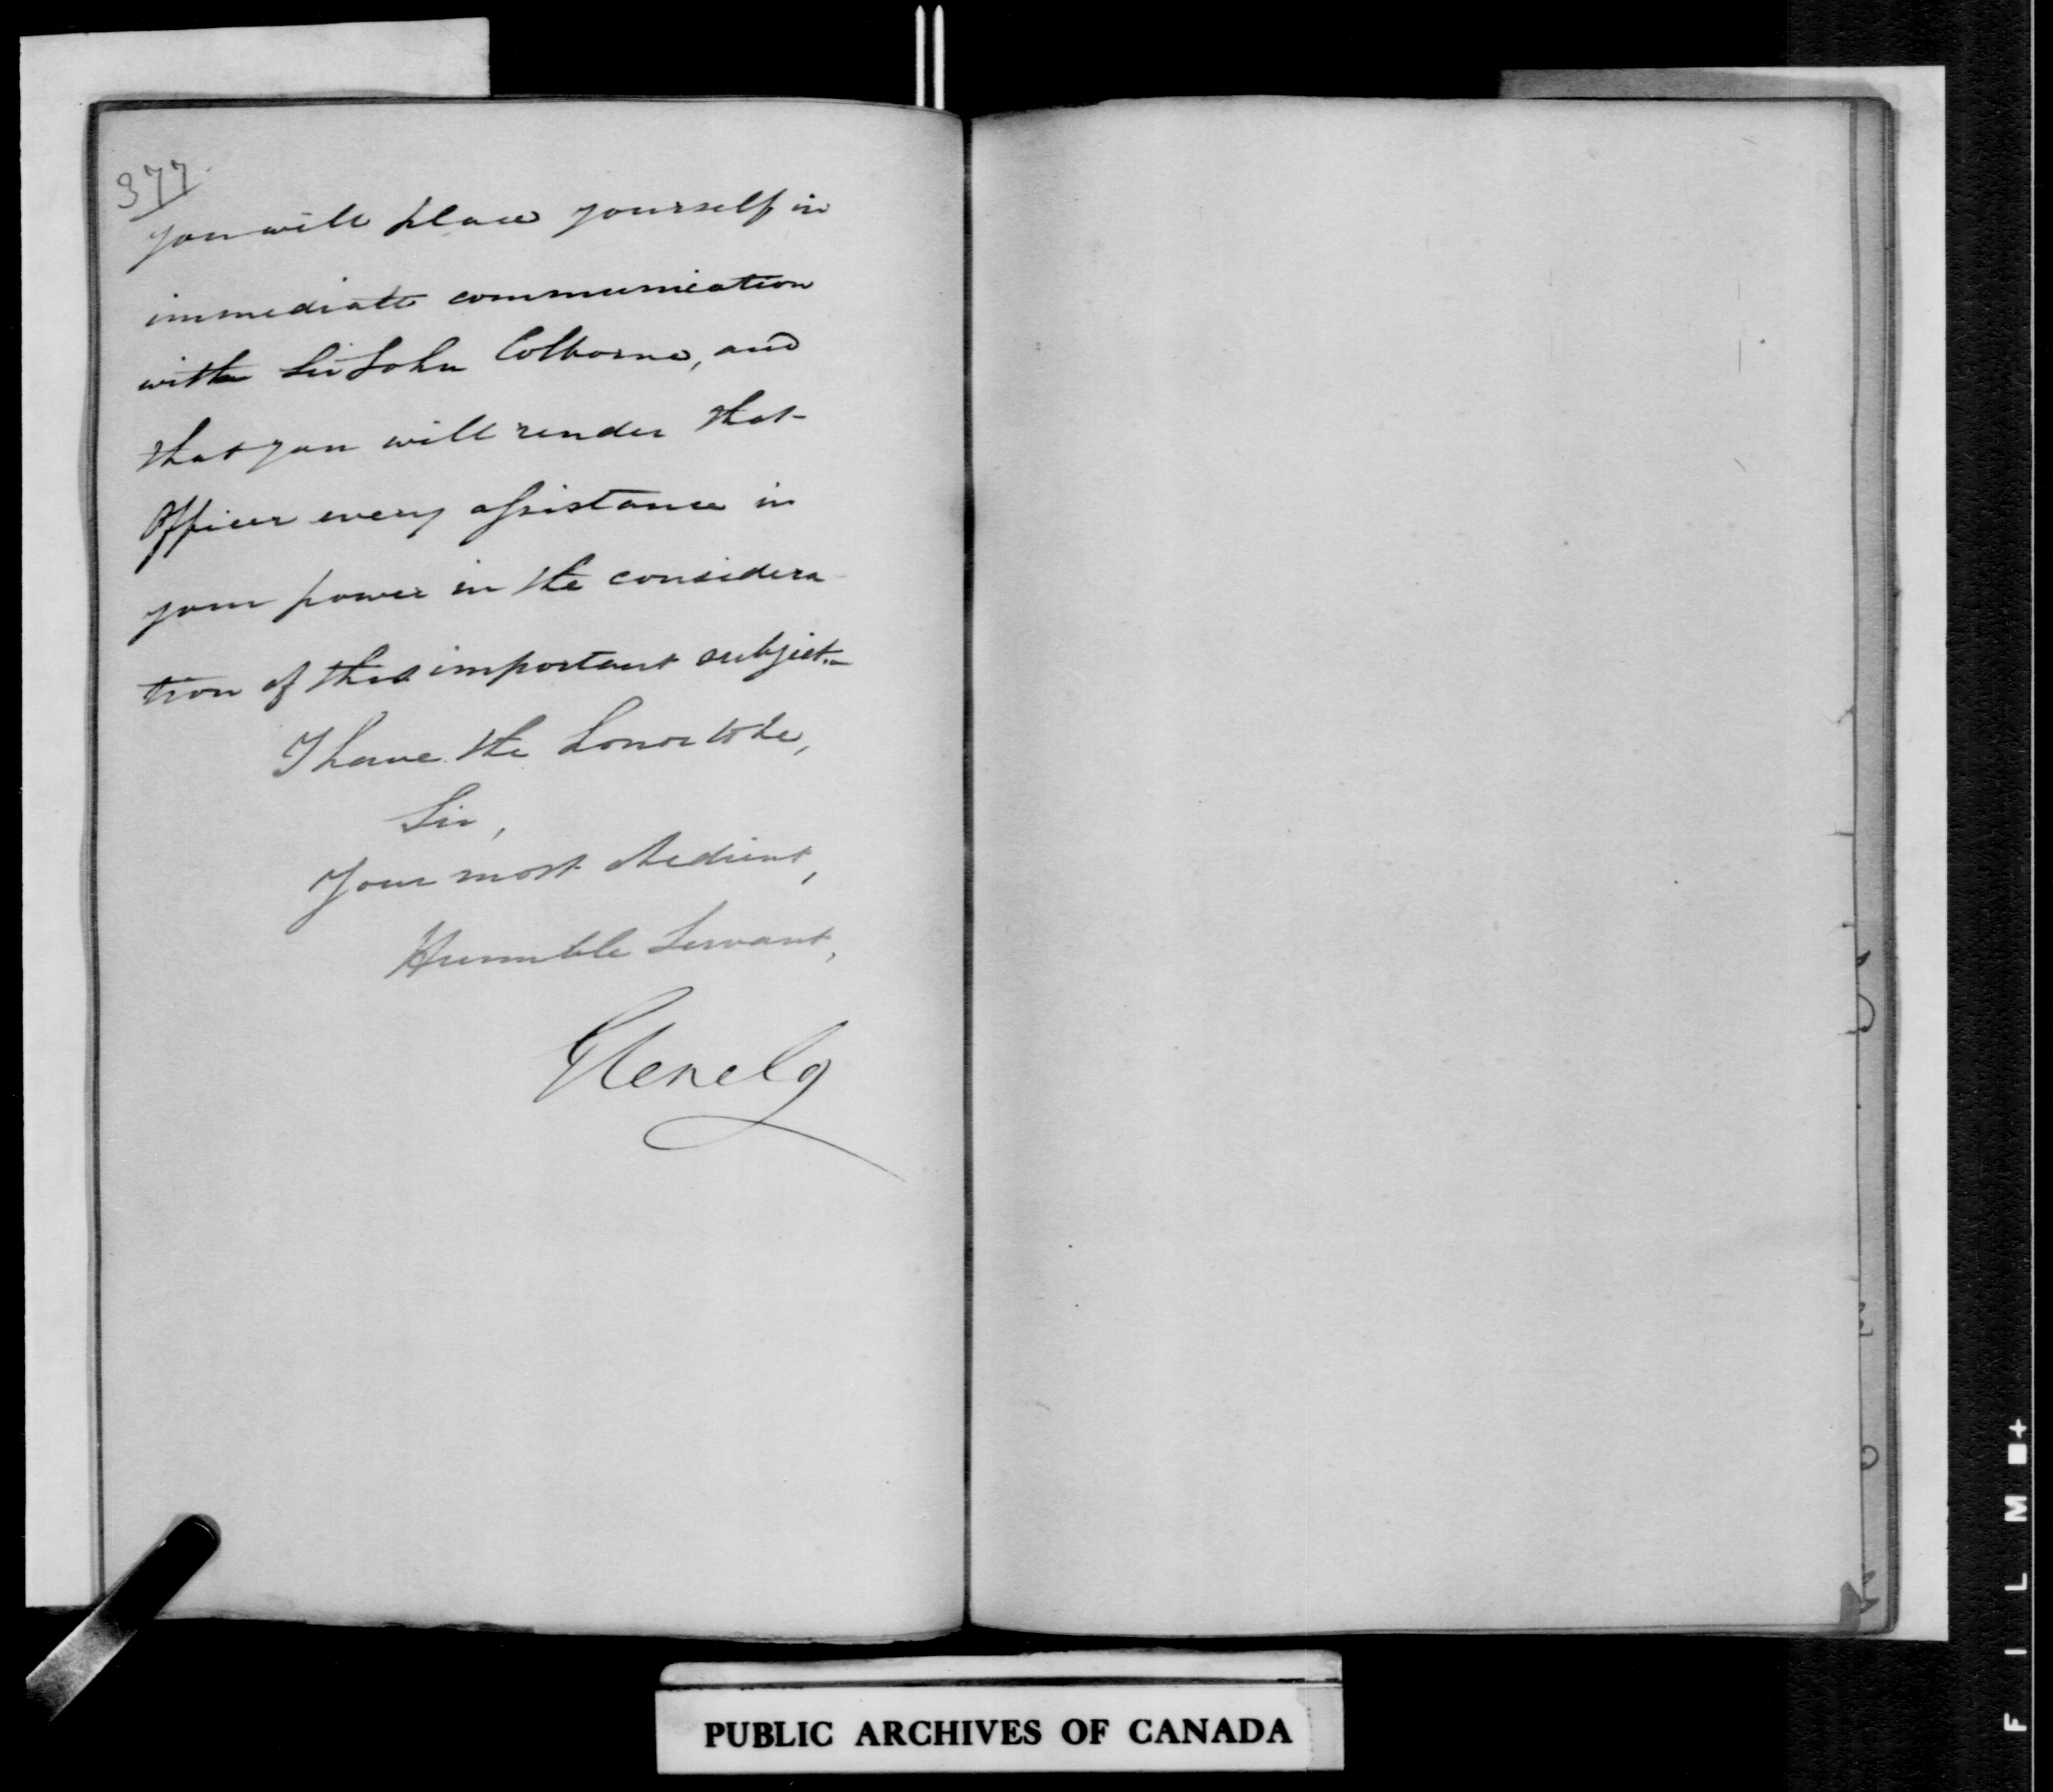 377
you will place yourself in
immediate communication
with Sir John Colborne, and
that you will render that
Officer every assistance in
your power in the considera
tion of this important subject.
I have the honor to be,
Sir,
Your most obedient,
Humble Servant,
Glenelg
PUBLIC ARCHIVES OF CANADA
FILM